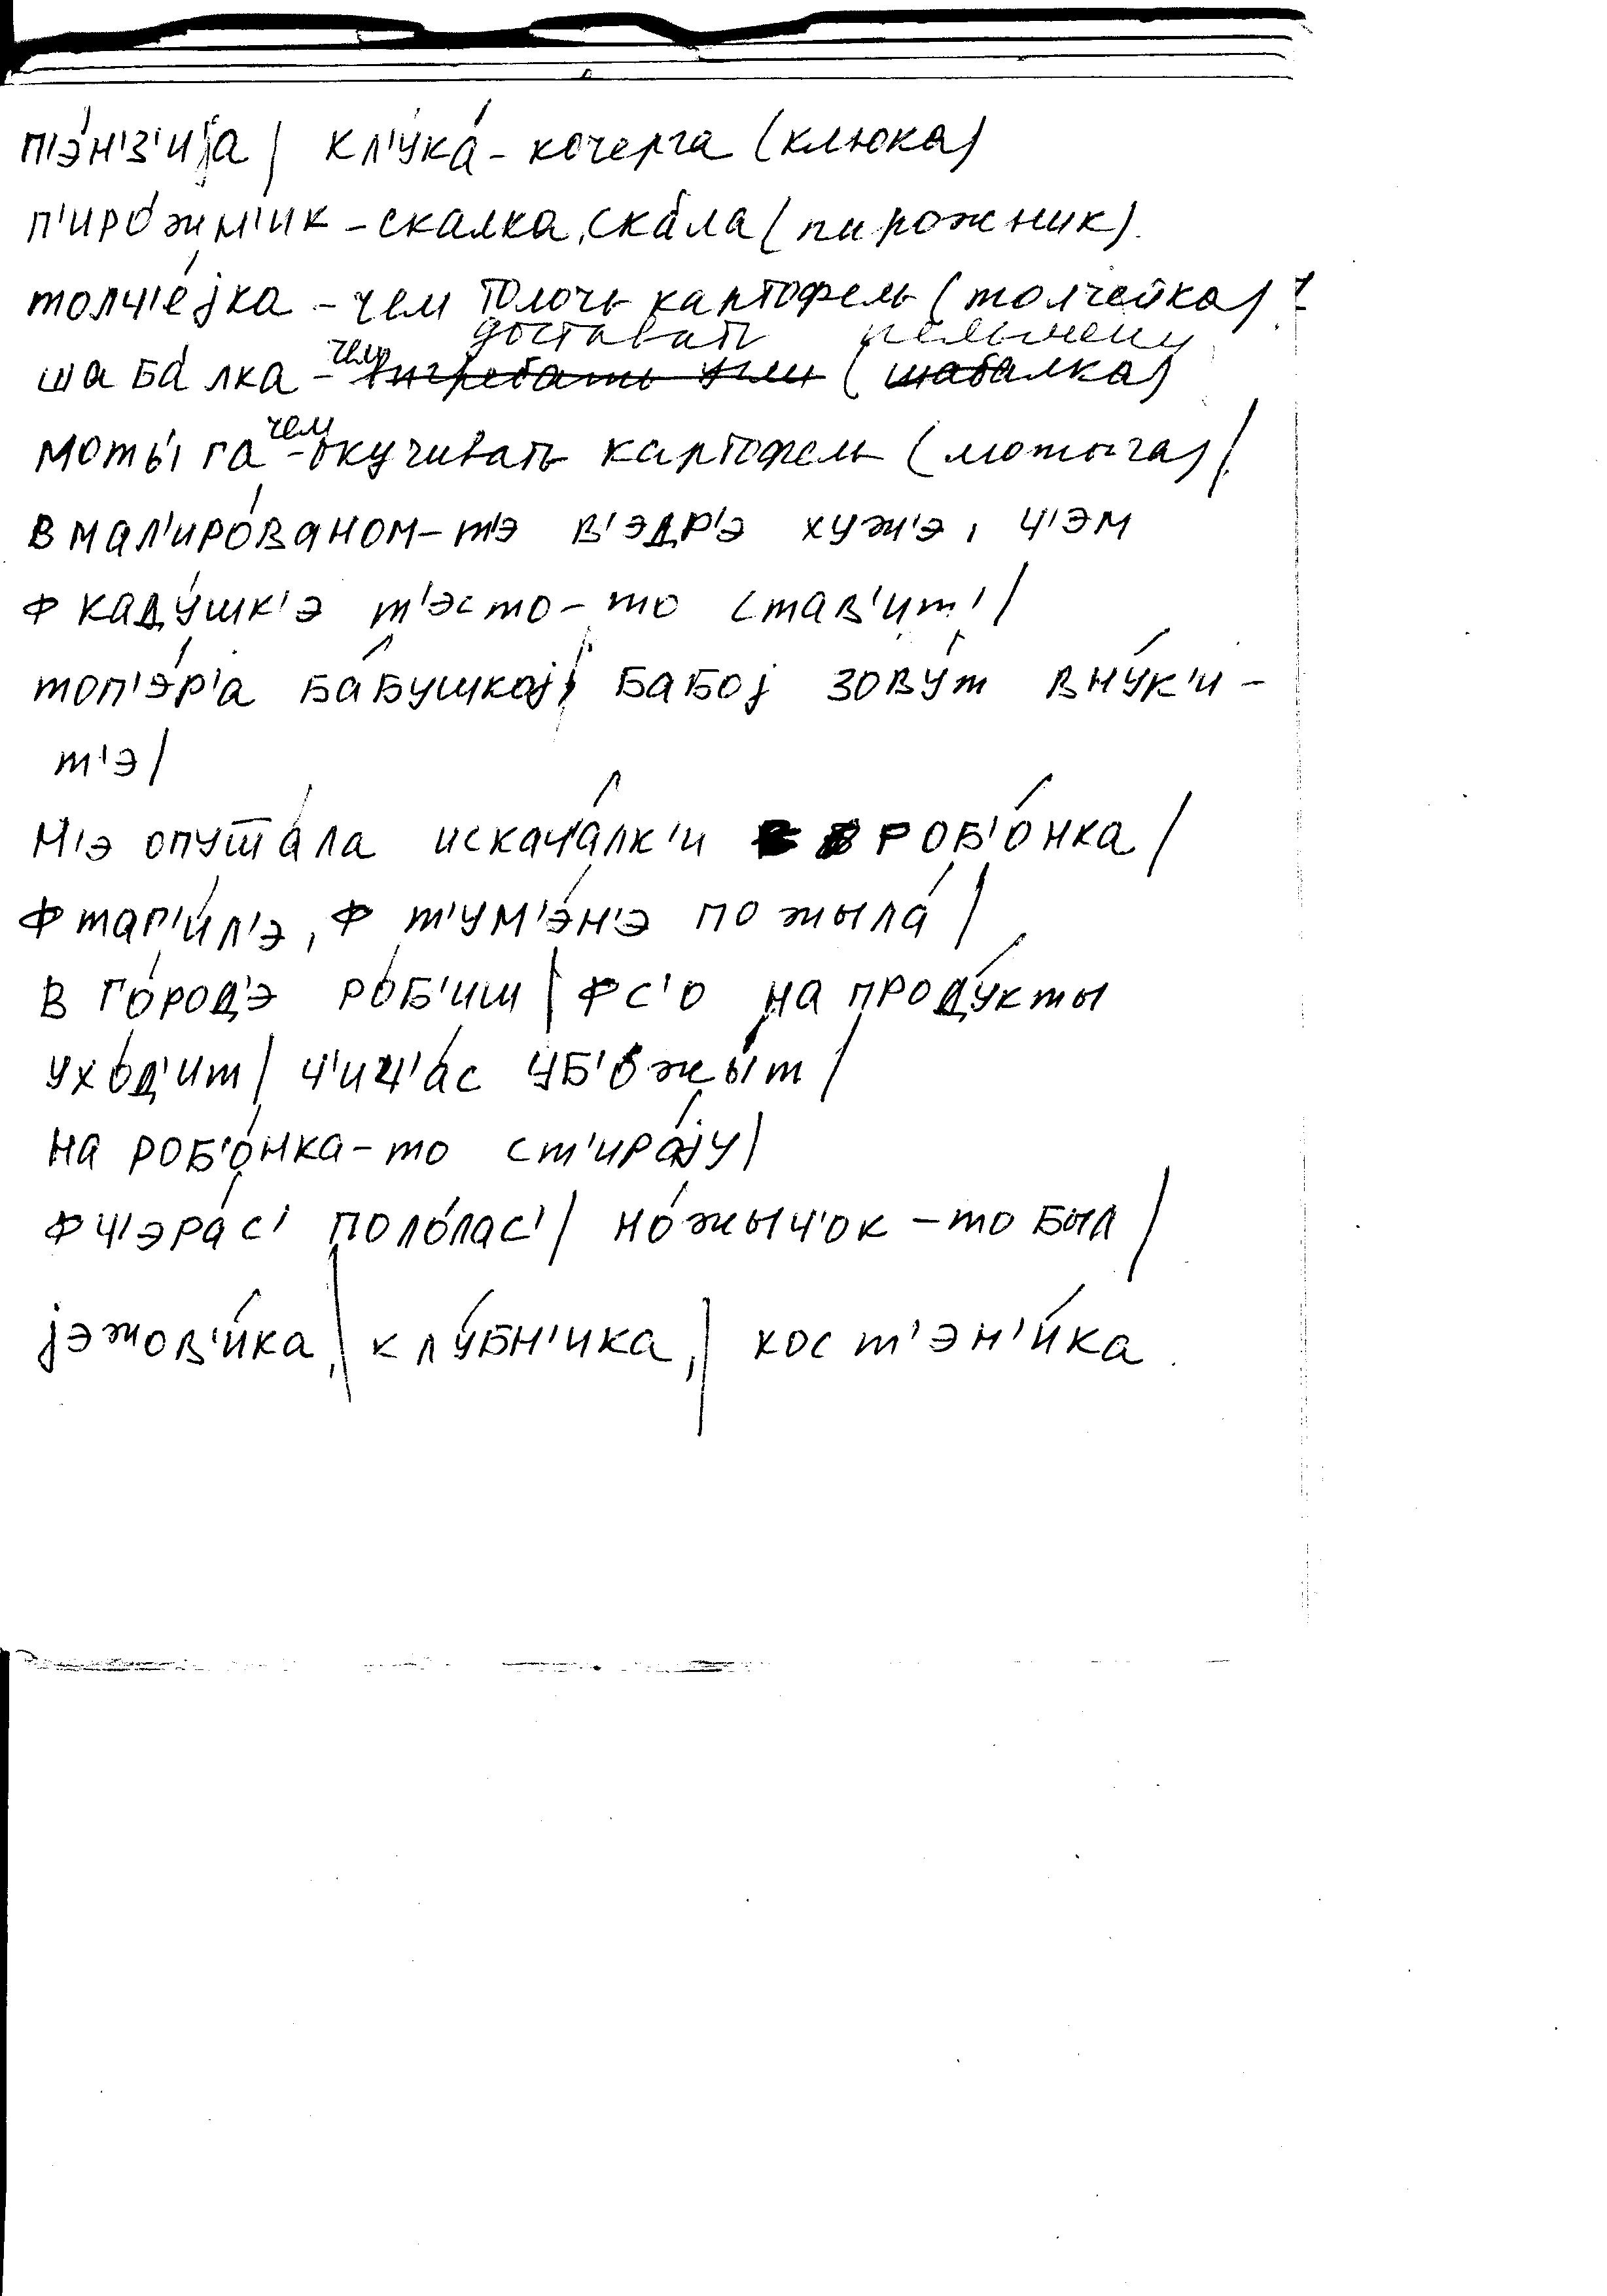 п'э́н'з'иjа | кл'ука́ - кочерга (клюка)
п'иро́жн'ик - скалка, ска́ла (пирожник).
толч'е́jка - чем толочь картофель (толчейка)
доставать пельмени
шаба́лка - чем выгребать угли (шабалка)
моты́га - чем окучивать картофель (мотыга) |
в мал'иро́ваном-т'э в'эдр'э хуж'э, ч'эм
ф каду́шк'э т'эсто-то став'ит' |
топ'э́р'а ба́бушкоj | бабоj зову́т вну́к'и -
т'э |
н'э опута́ла искач'а́лк'и роб'о́нка |
ф таг'и́л'э, ф т'ум'э́н'э пожыла́ |
в го́род'э ро́б'иш | фс'о на проду́кты
ухо́д'ит | ч'ич'а́с уб'ожы́т |
на роб'о́нка-то ст'ира́jу |
фч'эра́с' поло́лас' | но́жыч'ок - то был |
jэжов'и́ка, | клу́бн'ика, | кост'эн'и́ка.